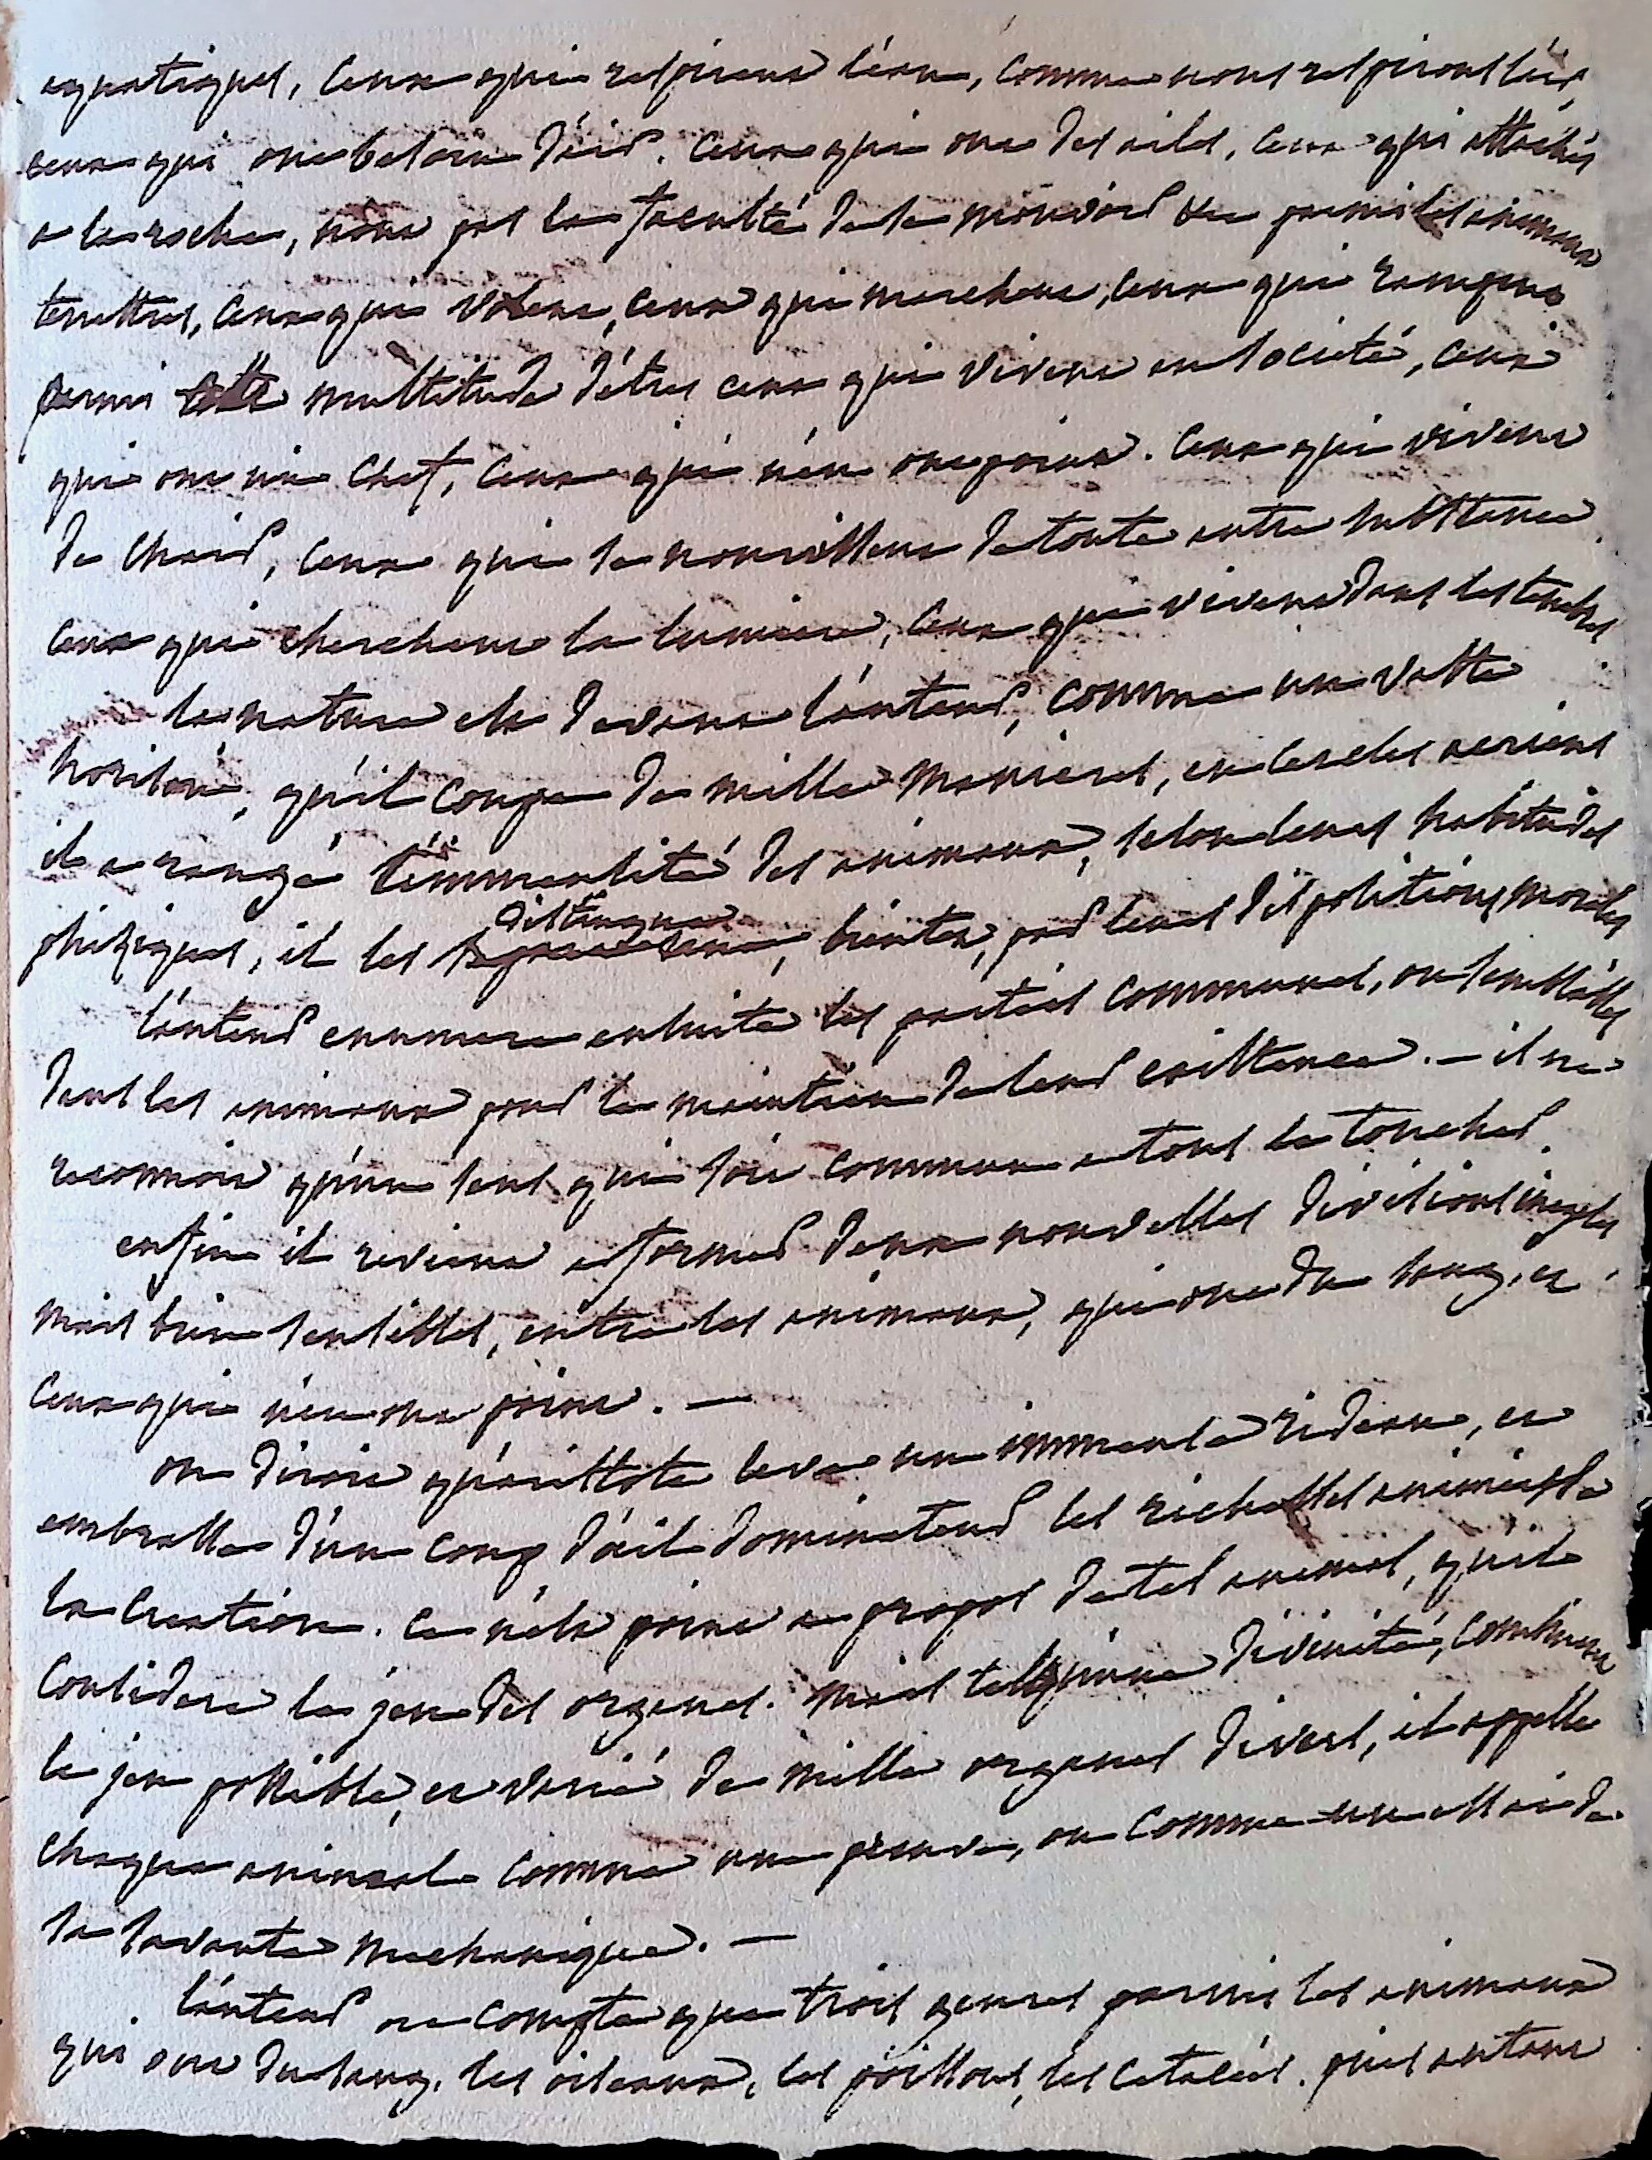 aquatiques, ceux qui respirent l'éau, comme nous respirons l'air
ceux qui ont besoin d'air. ceux qui ont des ailes, ceux qui attachés
a la roche, n'ont pas la faculté de se mouvoir parmi les animaux
terrestres, ceux qui volent, ceux qui marchent, ceux qui rampent
parmi cette multitude d'étres ceux qui vivent en societé, ceux
qui ont un chef, ceux qui n'en ont point. ceux qui vivent
de chair, ceux qui se nourissent de toute autre substance
ceux qui cherchent la lumiere, ceux qui vivent dans les tenebres
la nature est devant l'auteur, comme un vaste
horison, qu'il coupe de mille manieres, en cercles
il a rangé l'immensité des animaux, selon leurs habitudes
phisiques, il les distingue, bientot, par leurs dispositions morales
l'auteur enumere ensuite les parties communes, ou semblables
dans les animaux pour le maintien de leur existence. — il ne
reconnoit qu'un sens qui soit commun a tous le toucher.
enfin il revient a former deux nouvelles divisions inegales
mais bien sensibles, entre les animaux, qui ont du sang, et
ceux qui n'en ont point. —
on diroit qu'aristote leve un immense rideau, et
embrasse d'un coup d'œil dominateur les richesses animées de
la creation. ce n'est point a propos de tel animal, qu'il
considere le jeu des organes. mais tel qu'une divinité, combinant
le jeu possible, et varié de mille organes divers, il appelle
chaque animal comme une preuve, ou comme un essai de
sa savante mechanique. —
l'auteur ne compte que trois genres parmis les animaux
qui ont du sang, les oiseaux, les poissons, les cetacés. puis autant